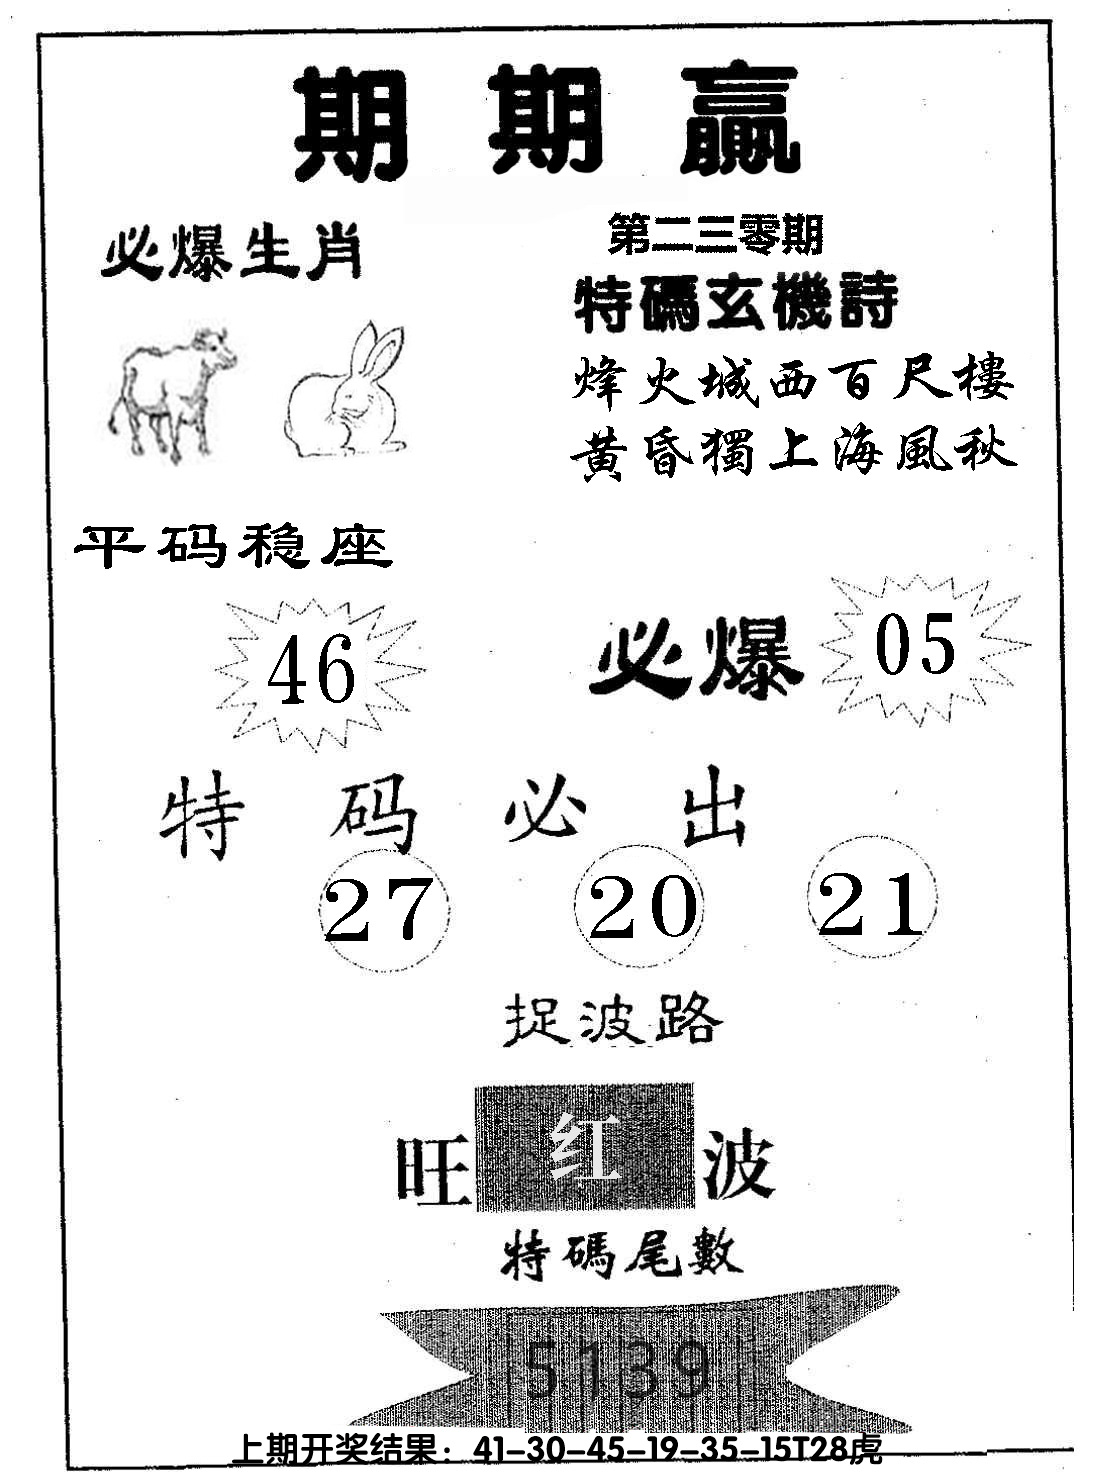 期期赢
第二三零期
必爆生肖
特碼玄機詩
烽火城西百尺樓
黄昏獨上海風秋
平码稳座
46
必爆 05
特码必出
27 20 21
捉波路
旺红波
特碼尾數
5139
上期开奖结果：41-30-45-19-35-15T28虎